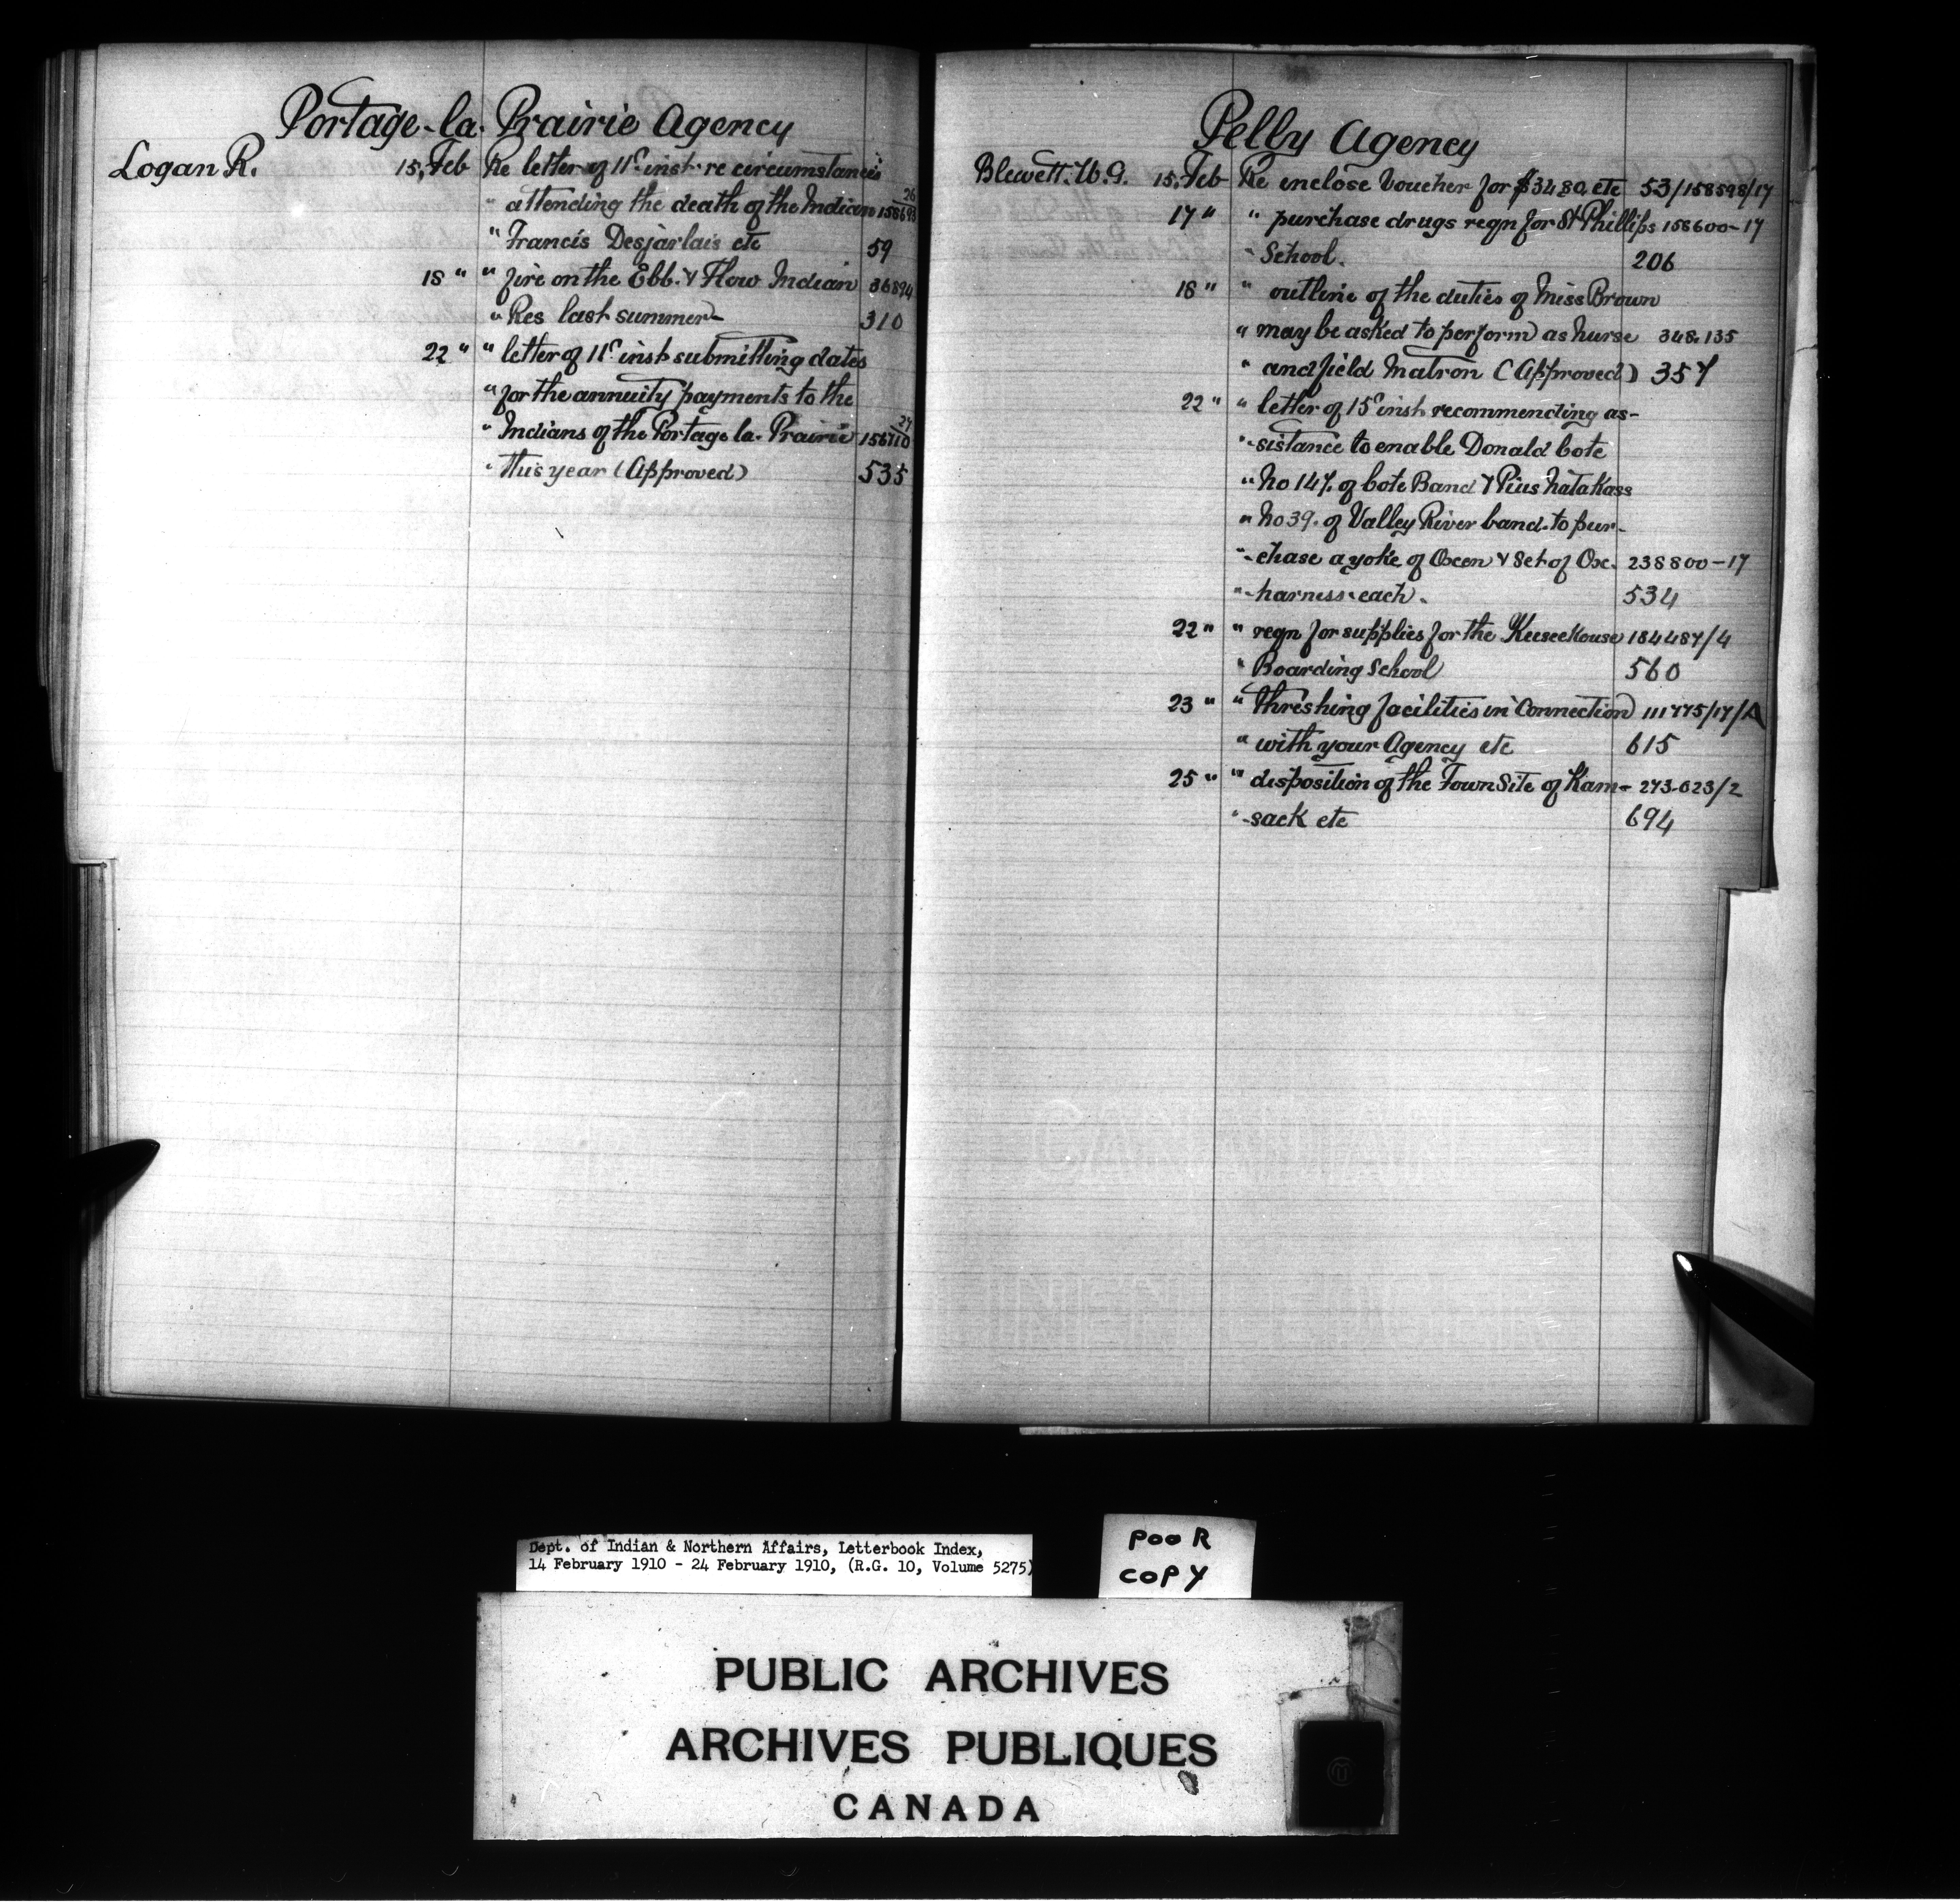 Portage-la-Prairie Agency
Logan R. 15, Feb Re letter of 11th inst. re circumstances
" attending the death of the Indian 26
" Francis Desjarlais etc 59
18 " " fire on the Ebb. & Flow Indian 36894
" Res last summer 310
22 " " letter of 11th inst submitting dates
" for the annuity payments to the
" Indians of the Portage la. Prairie
" this year (Approved) 535
Pelly Agency
Blewett. W.G. 15, Feb Re enclose Voucher for $34.80, etc 53/158598/17
17 " " purchase drugs reqn for St Phillips 158600-17
" School. 206
18 " " outline of the duties of Miss Brown
" may be asked to perform as nurse 348.135
" and field Matron (Approved) 357
22 " " letter of 15th inst recommending as-
" -sistance to enable Donald Cote
" No 147. of Cote Band & Pius Natakass
" No 39. of Valley River band. to pur-
" -chase a yoke of Oxen & Set of Ox. 238800-17
" -harness each. 534
22 " " reqn for supplies for the Keeseekouse 184487/4
" Boarding School 560
23 " " threshing facilities in Connection 111775/17/A
" with your Agency etc 615
25 " " disposition of the Town Site of Kam- 273-023/2
" -sack etc 694
Dept. of Indian & Northern Affairs, Letterbook Index,
14 February 1910 - 24 February 1910, (R.G. 10, Volume 5275)
POOR
COPY
PUBLIC ARCHIVES
ARCHIVES PUBLIQUES
CANADA